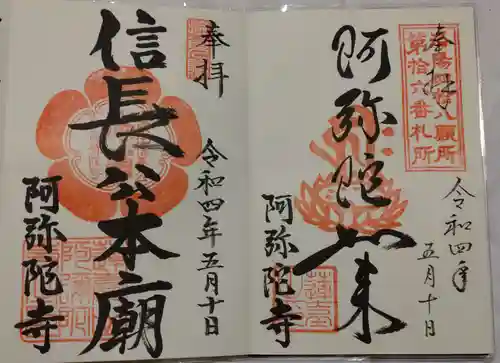 奉拝
洛陽四十八願所
第拾六番札所
令和四年
五月十日
阿弥陀如来
阿弥陀寺
奉拝
令和四年五月十日
信長公本廟
阿弥陀寺